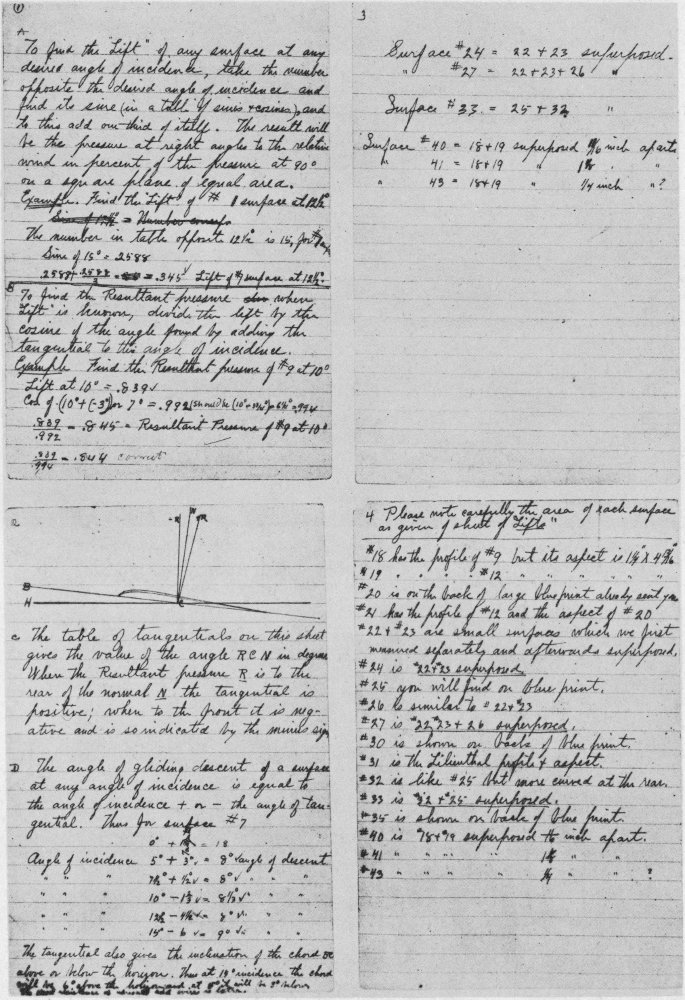 A
To find the "Lift" of any surface at any
desired angle of incidence, take the number
opposite the desired angle of incidence and
find its sine (in a table of sines & cosines), and
to this add one third of itself. The result will
be the pressure at right angles to the relative
wind in percent of the pressure at 90°
on a square plane of equal area.
Example. Find the "Lift" of # 1 surface at 12½°
The number in table opposite 12½° is 15,
Sine of 15° = .2588
.2588 + .2588/3 = .345 Lift of #7 surface at 12½°.
B
To find the Resultant pressure when
"Lift" is known, divide the lift by the
cosine of the angle found by adding the
tangential to the angle of incidence.
Example Find the Resultant pressure of #9 at 10°
Lift at 10° = .839
Cos of (10° + (-3°)) or 7° = .992
.839/.992 = .845 = Resultant Pressure of #9 at 10°
.839/.994 = .844 correct
N
R
B
H
C
C The table of tangentials on this sheet
gives the value of the angle RCN in degrees
When the Resultant pressure R is to the
rear of the normal N the tangential is
positive; when to the front it is neg-
ative and is so indicated by the minus sign
D The angle of gliding descent of a surface
at any angle of incidence is equal to
the angle of incidence + or - the angle of tan-
gential. Thus for surface #7
= 18
Angle of incidence 5° + 3° = 8° angle of descent
" " " 7½ + ½ = 8° " "
" " " 10° - 1½ = 8½ " "
" " " 12½ - 4½ = 8° " "
" " " 15° - 6 = 9° " "
The tangential also gives the inclination of the chord
above or below the horizon. Thus at 15° incidence the chord
will be 6° above the horizon and at 5° it will be 3° below
3
Surface #24 = 22 + 23 superposed.
" #27 = 22 + 23 + 26 "
Surface #33. = 25 + 32 "
Surface #40 = 18 + 19 superposed inch apart
" 41 = 18 + 19 "
" 43 = 18 + 19 " ¼ inch " ?
4 Please note carefully the area of each surface
as given of sheet of "Lifts"
#18 has the profile of #9 but its aspect is
#19 " " " " #12 " " " " "
#20 is on the back of large blue print already sent you
#21 has the profile of #12 and the aspect of #20
#22 & #23 are small surfaces which we first
measured separately and afterwards superposed.
#24 is #22 & 23 superposed.
#25 you will find on blue print.
#26 is similar to #22 & 23
#27 is #22 #23 + 26 superposed.
#30 is shown on back of blue print.
#31 is the Lilienthal profile & aspect.
#32 is like #25 but more curved at the rear.
#33 is #32 & #25 superposed.
#35 is shown on back of blue print.
#40 is #18 & #19 superposed inch apart.
#41 " " " " " "
#43 " " " " ¼ " " ?